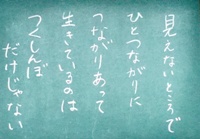 見えないところで
ひとつながりに
つながりあって
生きているのは
つくしんぼ
だけじゃない